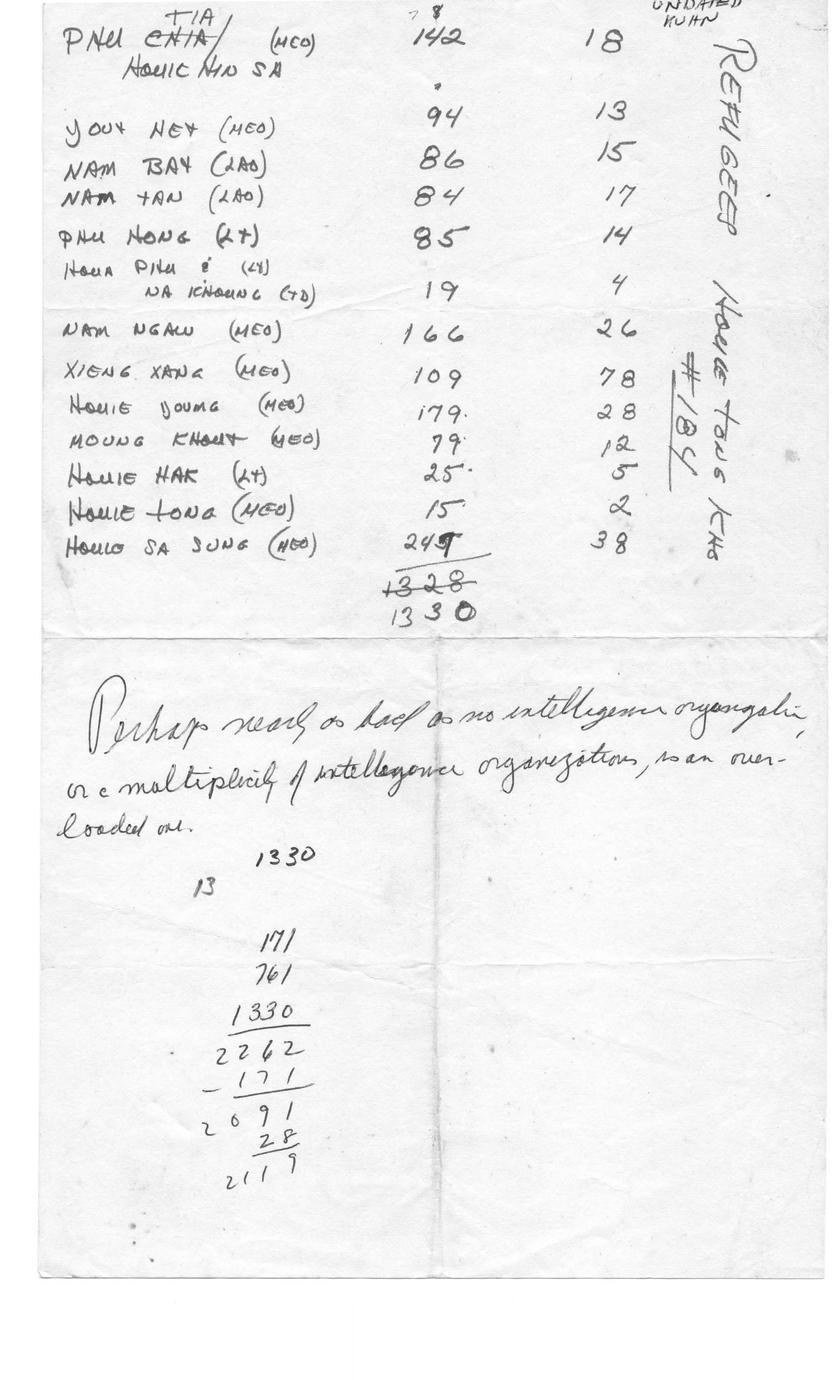 UNDATED
KUHN
TIA
PHU CHIA (MEO) 142 18
HOUIE HIN SA
YOUT NET (MEO) 94 13
NAM BAT (LAO) 86 15
NAM TAN (LAO) 84 17
PHU HONG (LT) 85 14
HOUA PHU & (LT)
NA KHOUNG (TD) 19 4
NAM NGAW (MEO) 166 26
XIENG XANG (MEO) 109 78
HOUIE YOUNG (MEO) 179 28
MOUNG KHOUT (MEO) 79 12
HOUIE HAK (LT) 25 5
HOUIE TONG (MEO) 15 2
HOUIE SA SUNG (MEO) 247 38
1328
1330
REFUGEES HOUIE TONG KHO
#184
Perhaps nearly as bad as no intelligence organization,
or a multiplicity of intelligence organizations, is an over-
loaded one.
1330
13
171
761
1330
2262
- 171
2091
28
2119